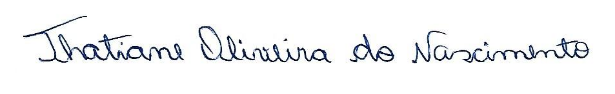 Thatiane Oliveira do Nascimento